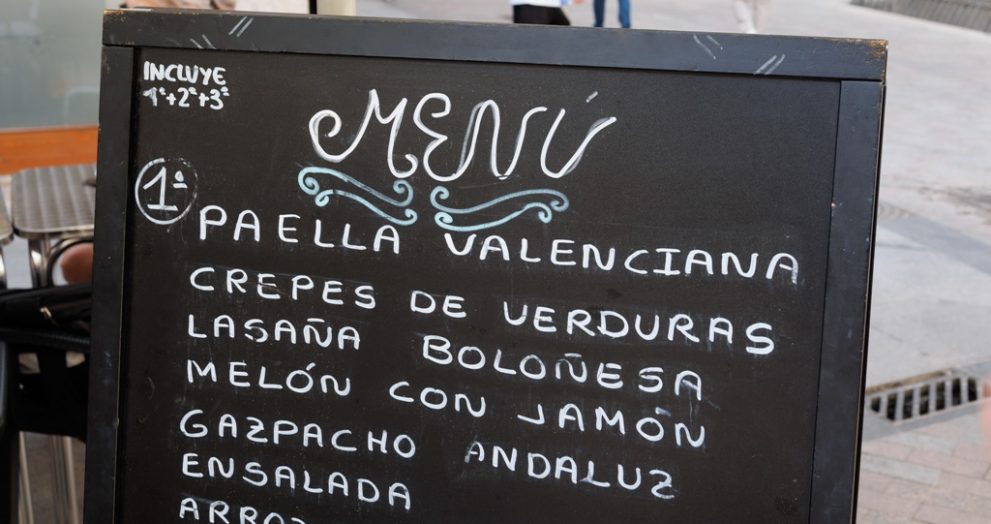 INCLUYE
1º+2º+3º
MENÚ
1º
PAELLA VALENCIANA
CREPES DE VERDURAS
LASAÑA BOLOÑESA
MELÓN CON JAMÓN
GAZPACHO ANDALUZ
ENSALADA